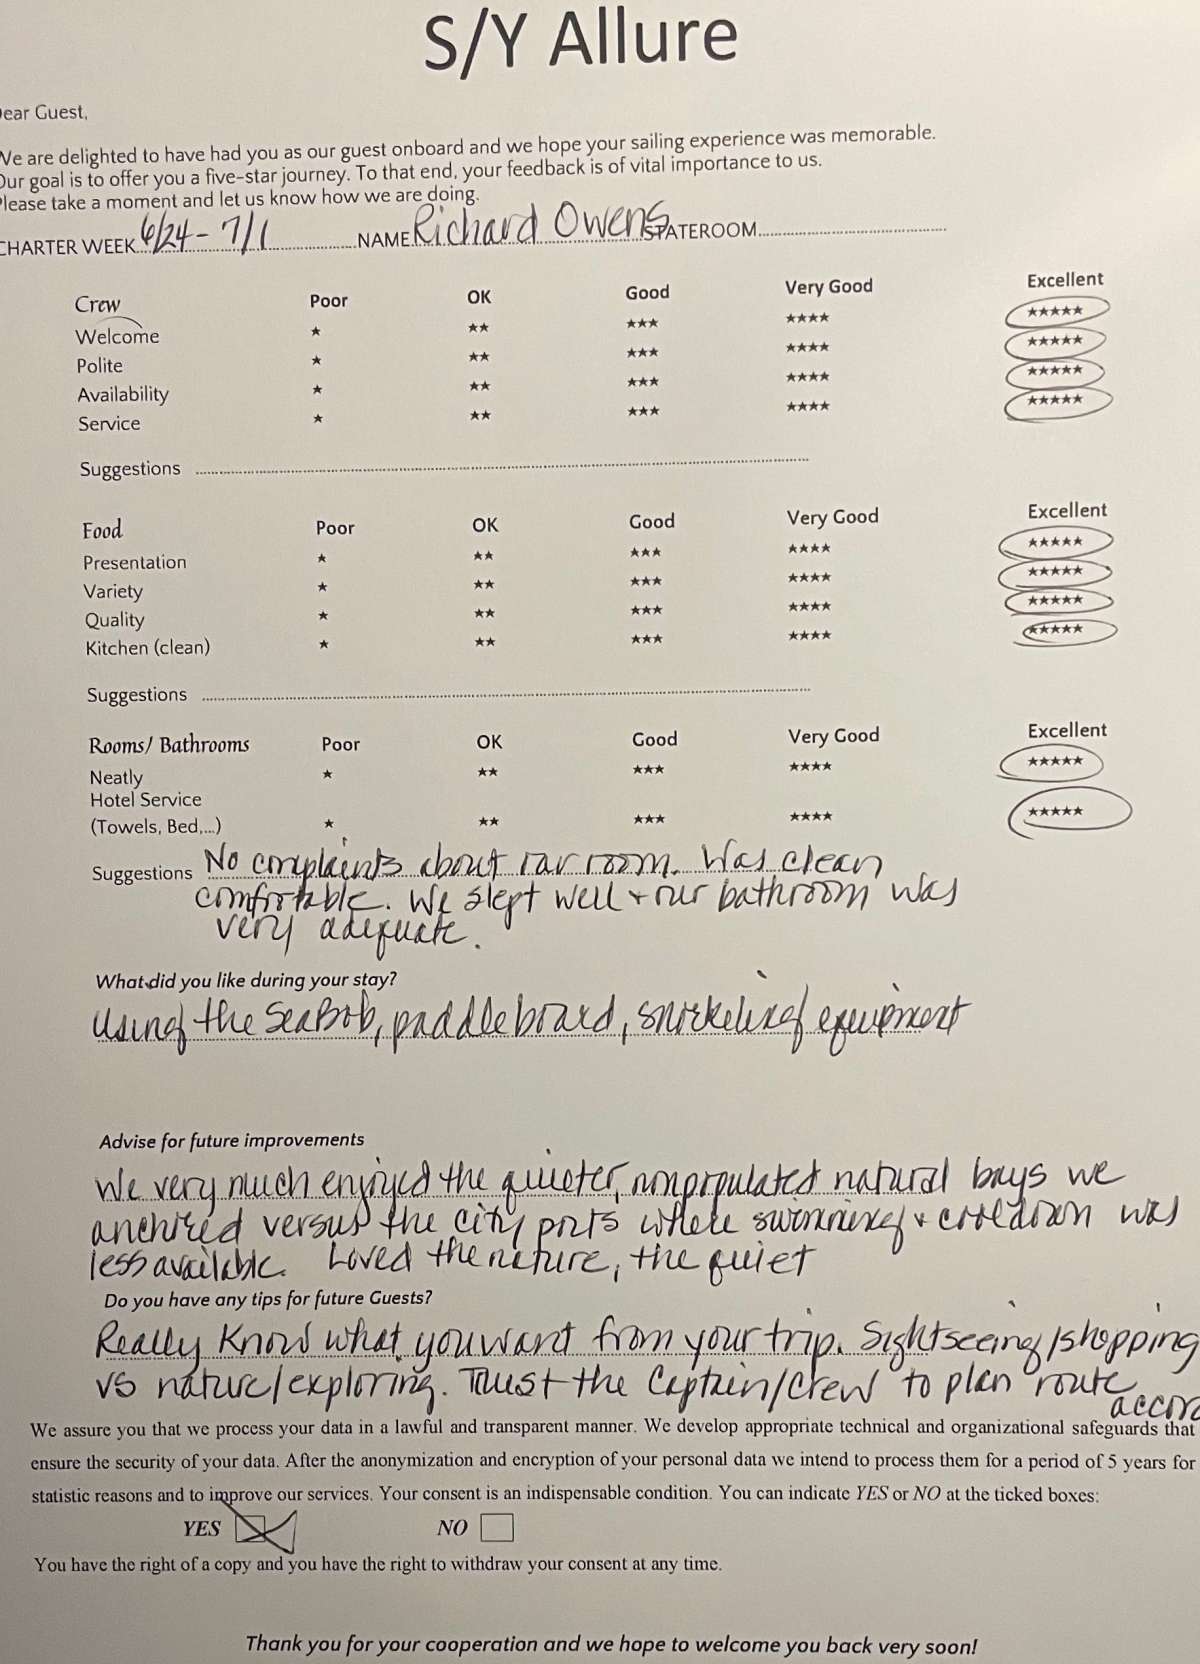 S/Y Allure
Dear Guest,
We are delighted to have had you as our guest onboard and we hope your sailing experience was memorable.
Our goal is to offer you a five-star journey. To that end, your feedback is of vital importance to us.
Please take a moment and let us know how we are doing.
CHARTER WEEK 6/24 - 7/1 NAME Richard Owens STATEROOM
Crew Poor OK Good Very Good Excellent
Welcome ★ ★★ ★★★ ★★★★ ★★★★★
Polite ★ ★★ ★★★ ★★★★ ★★★★★
Availability ★ ★★ ★★★ ★★★★ ★★★★★
Service ★ ★★ ★★★ ★★★★ ★★★★★
Suggestions
Food Poor OK Good Very Good Excellent
Presentation ★ ★★ ★★★ ★★★★ ★★★★★
Variety ★ ★★ ★★★ ★★★★ ★★★★★
Quality ★ ★★ ★★★ ★★★★ ★★★★★
Kitchen (clean) ★ ★★ ★★★ ★★★★ ★★★★★
Suggestions
Rooms/ Bathrooms Poor OK Good Very Good Excellent
Neatly ★ ★★ ★★★ ★★★★ ★★★★★
Hotel Service
(Towels, Bed,...) ★ ★★ ★★★ ★★★★ ★★★★★
Suggestions No complaints about our room. Was clean
comfortable. We slept well + our bathroom was
very adequate.
What did you like during your stay?
Using the SeaBob, paddleboard, snorkeling equipment
Advise for future improvements
We very much enjoyed the quieter, nonpopulated natural bays we
anchored versus the city ports where swimming + cooldown was
less available. Loved the nature, the quiet
Do you have any tips for future Guests?
Really Know what you want from your trip. Sightseeing/shopping
vs nature/exploring. Trust the Captain/Crew to plan route
accor
We assure you that we process your data in a lawful and transparent manner. We develop appropriate technical and organizational safeguards that
ensure the security of your data. After the anonymization and encryption of your personal data we intend to process them for a period of 5 years for
statistic reasons and to improve our services. Your consent is an indispensable condition. You can indicate YES or NO at the ticked boxes:
YES NO
You have the right of a copy and you have the right to withdraw your consent at any time.
Thank you for your cooperation and we hope to welcome you back very soon!